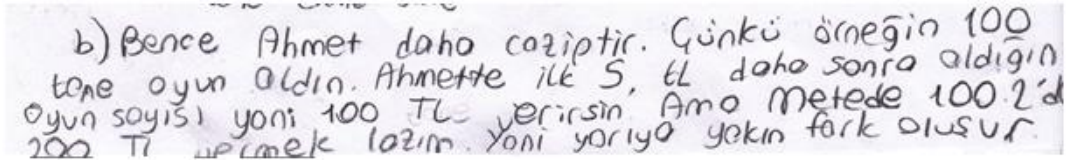 b) Bence Ahmet daha caziptir. Çünkü örneğin 100
tane oyun aldın. Ahmette ilk 5, tL daha sonra aldığın
oyun sayısı yani 100 TL verirsin Ama Metede 100.2'd
200 Tl vermek lazım. Yani yarıya yakın fark oluşur.